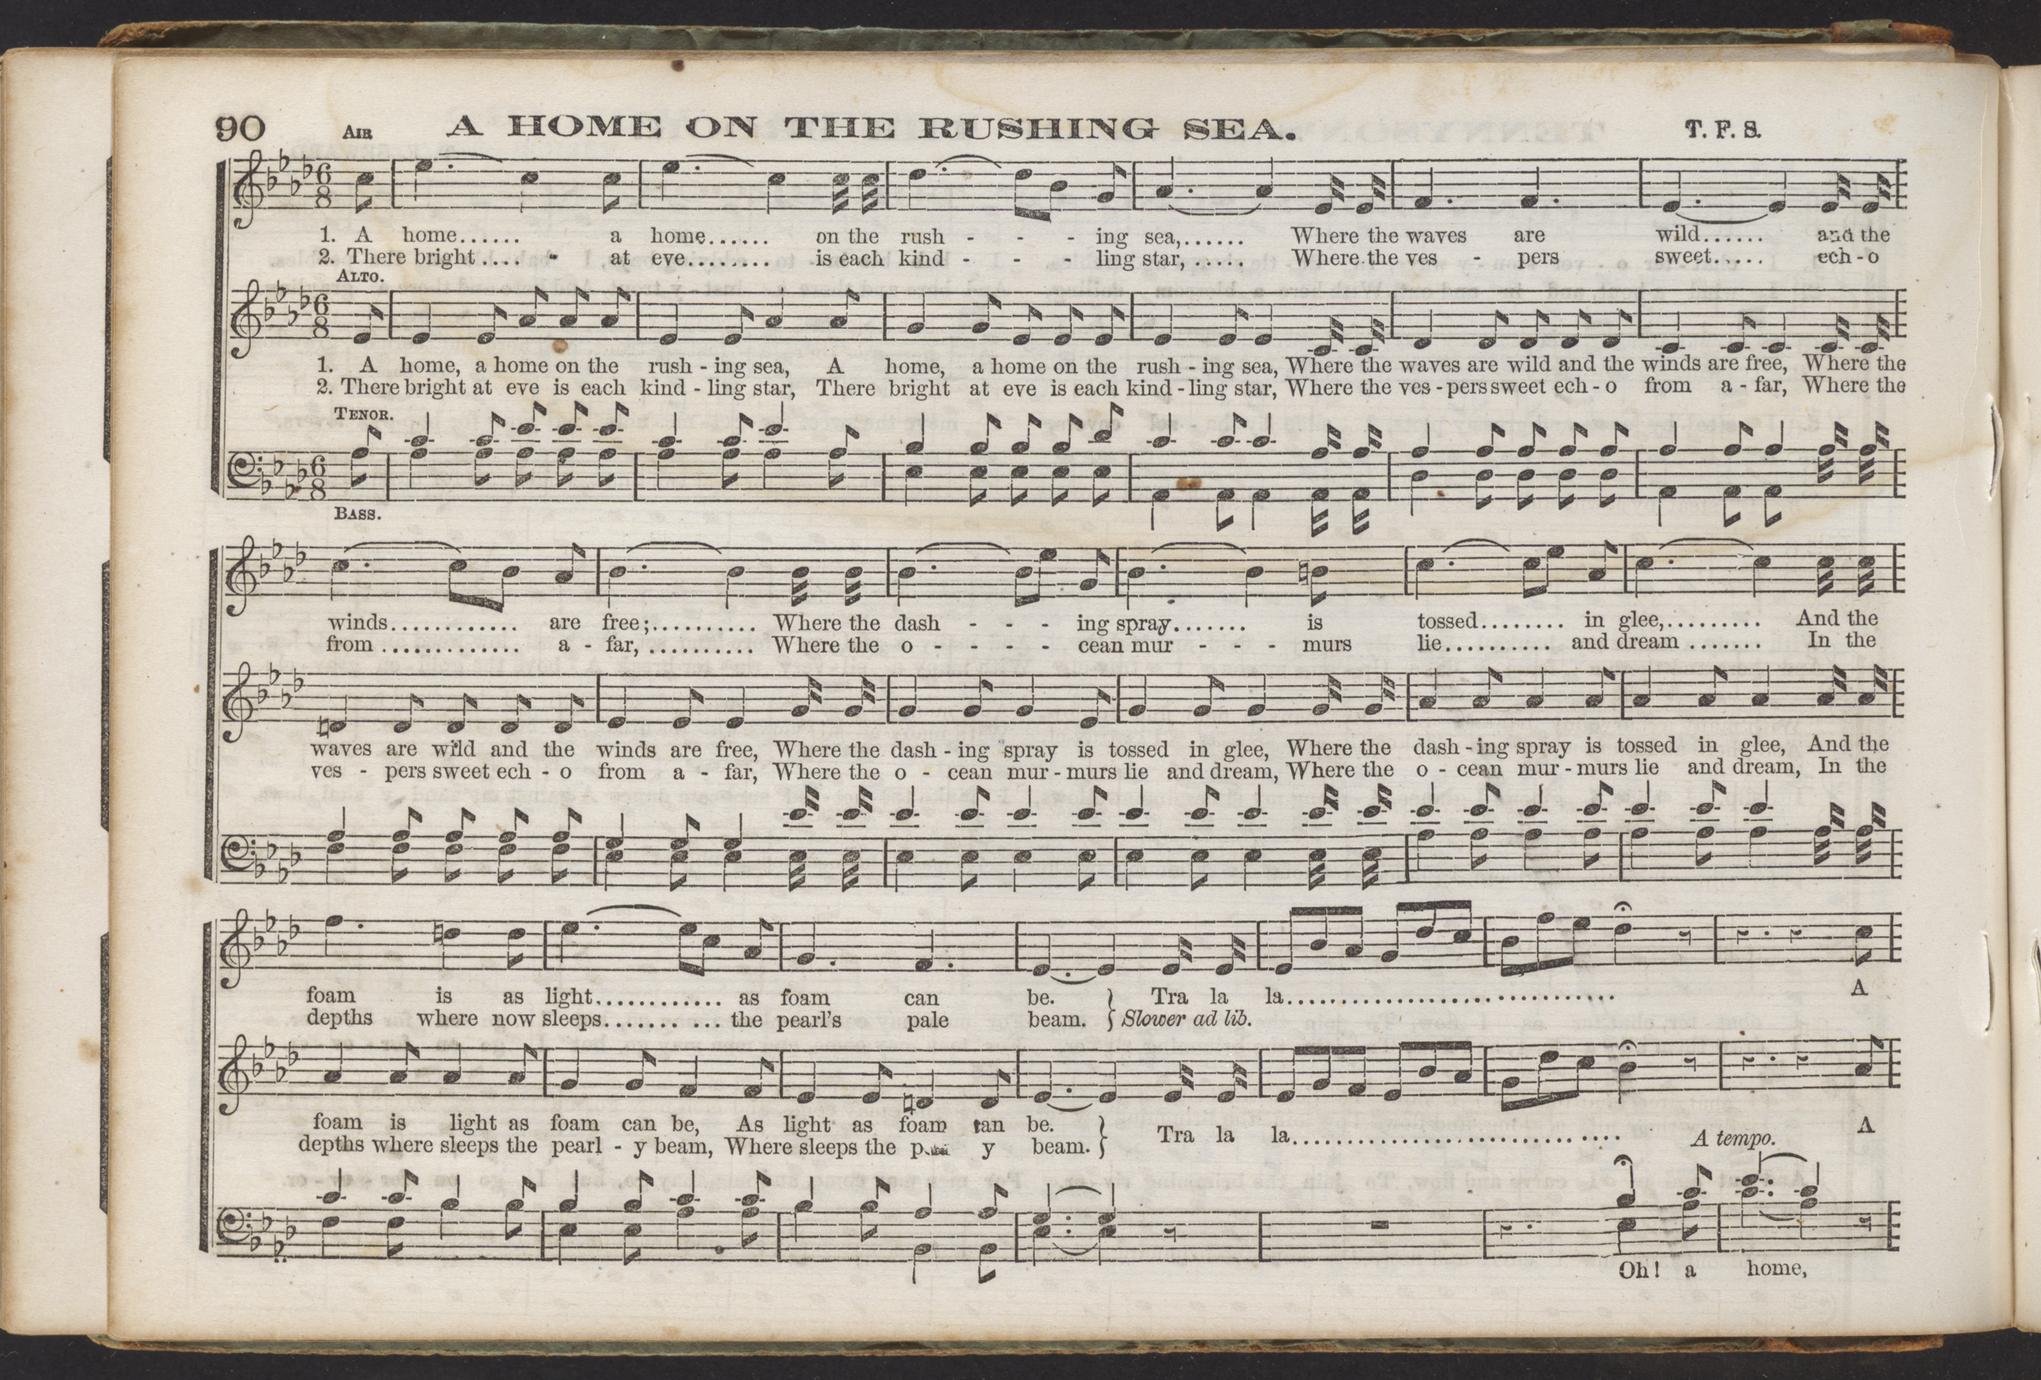 90 AIR A HOME ON THE RUSHING SEA. T. F. S.
1. A home...... a home...... on the rush - - - ing sea,...... Where the waves are wild...... and the
2. There bright .... - at eve........ is each kind - - - ling star, ..... Where the ves - pers sweet..... ech - o
ALTO.
1. A home, a home on the rush - ing sea, A home, a home on the rush - ing sea, Where the waves are wild and the winds are free, Where the
2. There bright at eve is each kind - ling star, There bright at eve is each kind - ling star, Where the ves - pers sweet ech - o from a - far, Where the
TENOR.
BASS.
winds............ are free;.......... Where the dash - - - ing spray....... is tossed........ in glee,......... And the
from ............. a - far, .......... Where the o - - - - cean mur - - - murs lie.......... and dream ....... In the
waves are wild and the winds are free, Where the dash - ing spray is tossed in glee, Where the dash - ing spray is tossed in glee, And the
ves - pers sweet ech - o from a - far, Where the o - cean mur - murs lie and dream, Where the o - cean mur - murs lie and dream, In the
foam is as light............ as foam can be. } Tra la la.................................. A
depths where now sleeps........ ... the pearl's pale beam. { Slower ad lib.
foam is light as foam can be, As light as foam can be. } Tra la la.................................. A
depths where sleeps the pearl - y beam, Where sleeps the y beam. } A tempo.
Oh! a home,